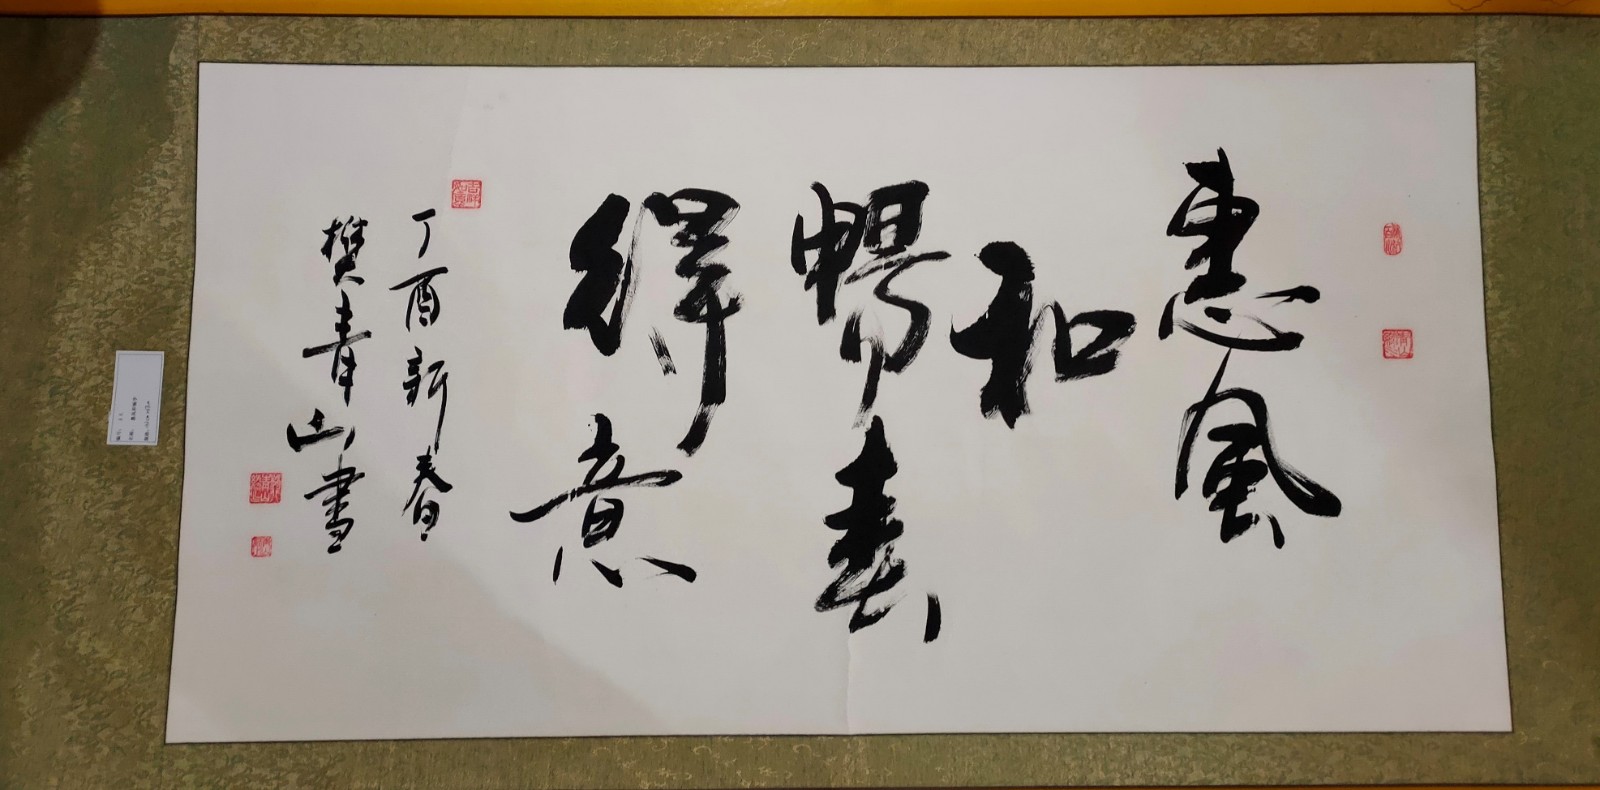 惠風
和
暢春
得意
丁酉新春
樊青山書